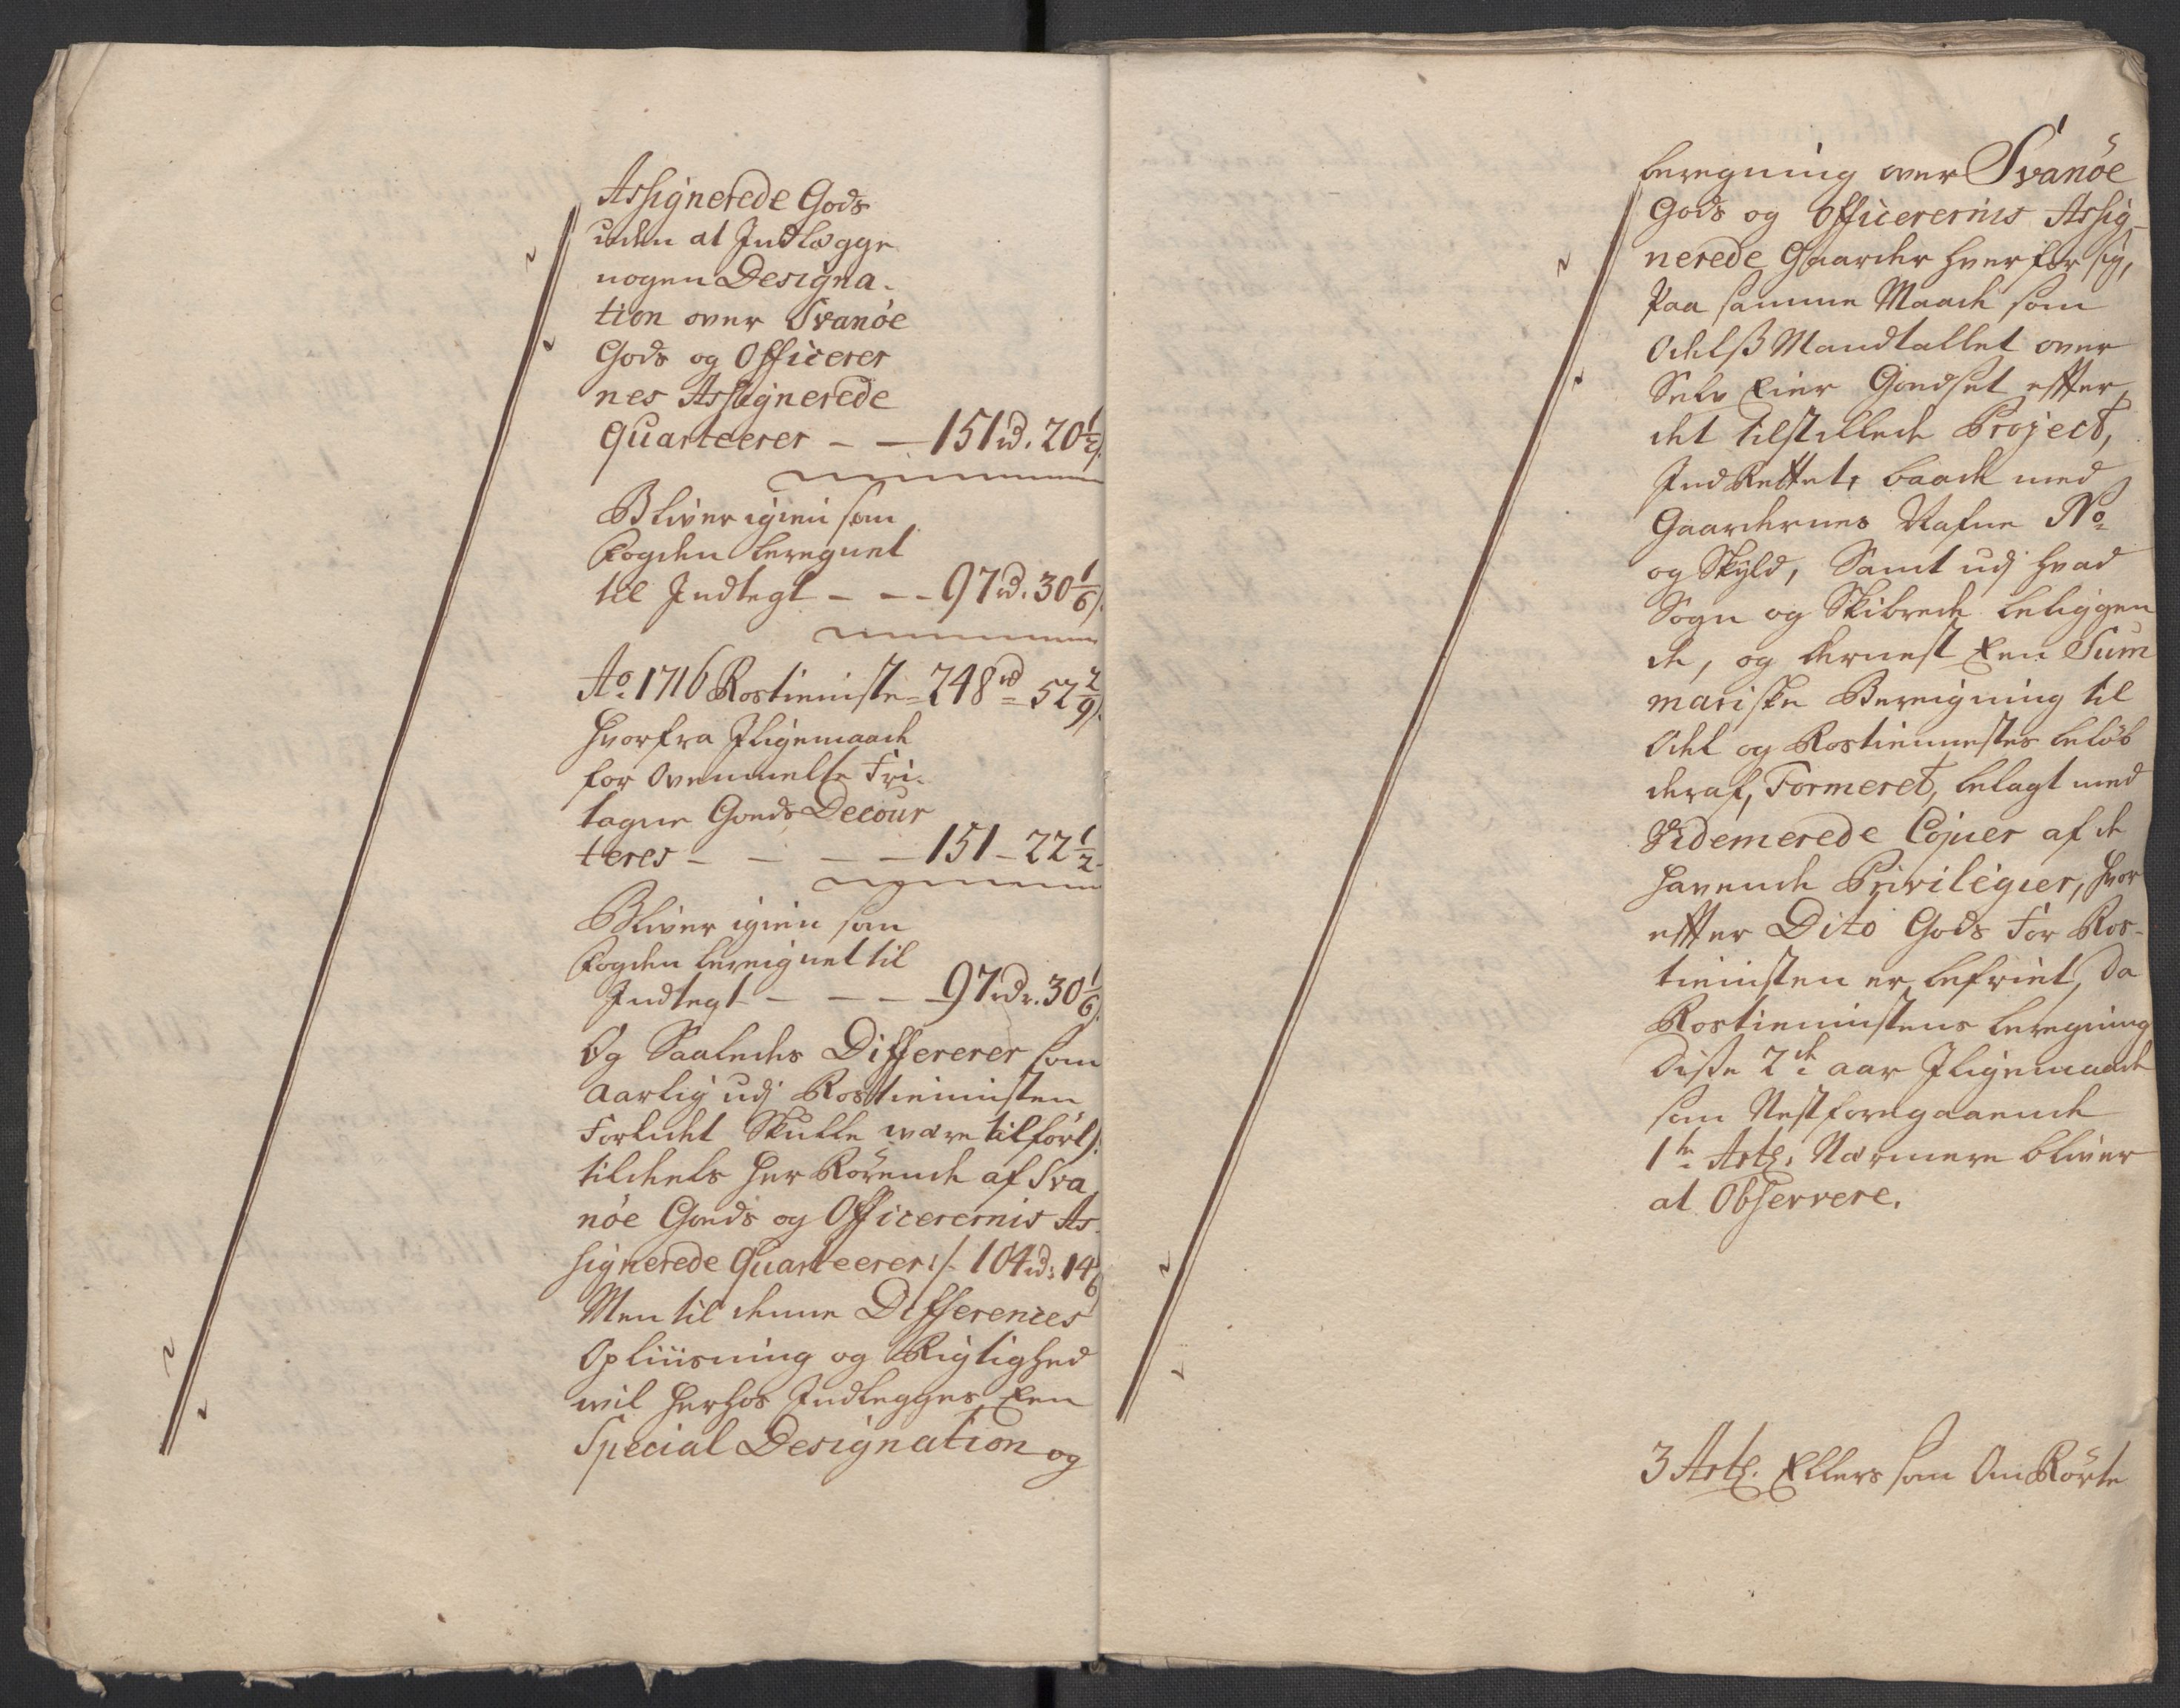 Assignerede Gods
uden at Indlegge
nogen Designa-
tion over Svanöe
Gods og Officerer
nes Assignerede
Quarteerer - - 151 rd. 20 1/2 s.
Bliver igien som
Fogden beregnet
til Indtegt - - - 97 rd. 30 1/6 s.
Ao. 1716 Rostieniste = 248 rd = 52 2/9 s.
hvorfra Iligemaade
for Ovenmelte Fri-
tagne Goeds Decour
teres - - - - 151 - 22 1/2 -
Bliver igien som
Fogden bereignet til
Indtegt - - - - 97 rdr. 30 1/6 s.
Og Saaledes Differerer som
aarlig udj Rostieniisten
Forlidet Skulle være tilfört /:
tildeels her Rörende af Sva
nöe Goeds og Officerernis As-
signerede Quarteerer :/ 104 rd: 14
Men til denne Differences
Opliusning og Rigtighed
wil herhos Indlegges Een
Special Designation og
beregning over Svanöe
Gods og Officerernis Assig-
nerede Gaarder hver for sig,
Paa samme Maade som
Odelss Mandtallet over
Selv Eier Goedset effter
det tilstillede Project,
Ind Rettet, baade med
Gaardernes Nafne No.
og Skyld, Samt udj hvad
Sogn og Skibrede beliggen
de, og dernest Een Sum
mariske Bereigning til
Odel og Rostiennestes beløb
deraf, Formeret, belagt med
Videmerede Copier af de
havende Privilegier, hvor
effter Dito Gods for Ros-
tienisten er befriet, Da
Rostienistens beregning
Disse 2de aar Iligemaade
som Nestforegaaende
1te Artl. Nærmere bliver
at Observere.
3 Artl. Ellers som Om Rörte